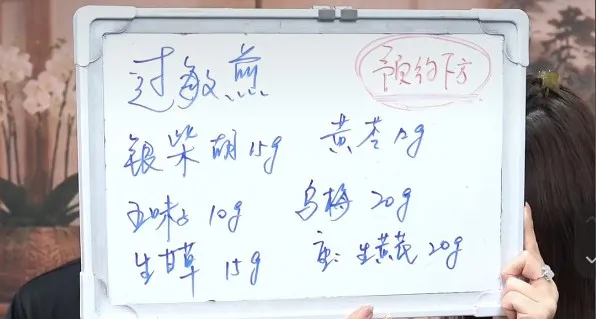 过敏煎
预约下方
银柴胡 15g 黄芩
五味子 10g 乌梅 20g
生甘草 15g 生黄芪 20g